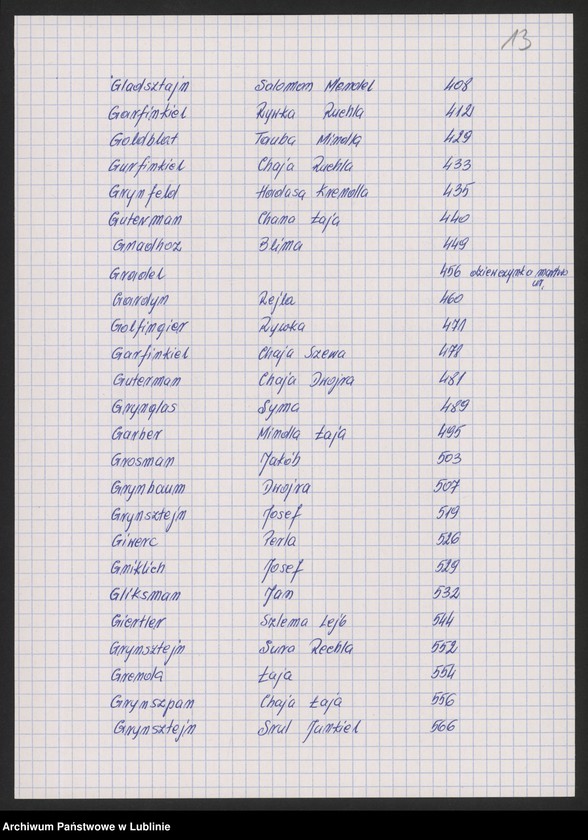 13
Gladsztajn Salomon Mendel 408
Garfinkiel Rywka Ruchla 412
Goldblat Tauba Mindla 429
Gurfinkiel Chaja Ruchla 433
Grynfeld Hadasa Krendla 435
Guterman Chana Łaja 440
Gnadhoz Blima 449
Gradel 456 dziewczynka martwo
ur.
Gardyn Rejla 460
Golfingier Rywka 471
Garfinkiel Chaja Szewa 478
Guterman Chaja Dwojra 481
Grynglas Syma 489
Garber Mindla Łaja 495
Grosman Jakób 503
Grynbaum Dwojra 507
Grynsztejn Josef 519
Giwerc Perla 526
Gniklich Josef 529
Gliksman Jan 532
Giertler Szlema Lejb 544
Grynsztejn Sura Rechla 552
Grenda Łaja 554
Grynszpan Chaja Łaja 556
Grynsztejn Srul Jankiel 566
Archiwum Państwowe w Lublinie